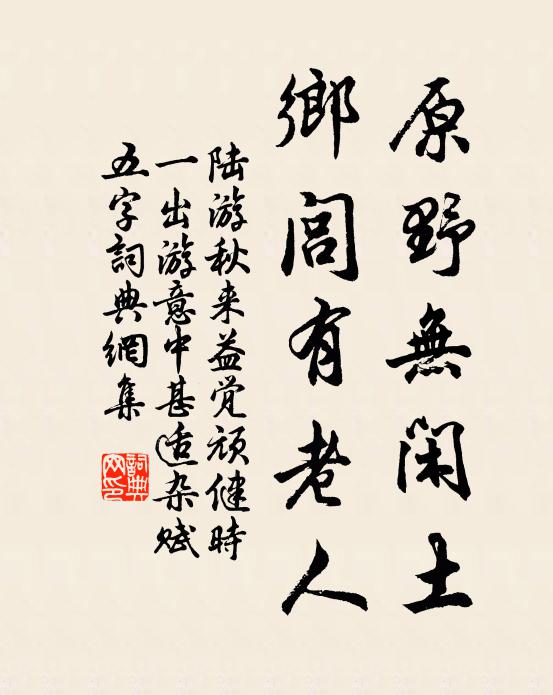 原野無閑土
鄉閭有老人
陆游秋来益觉顽健時
一出游意中甚适杂赋
五字詞典網集
詞典
网印